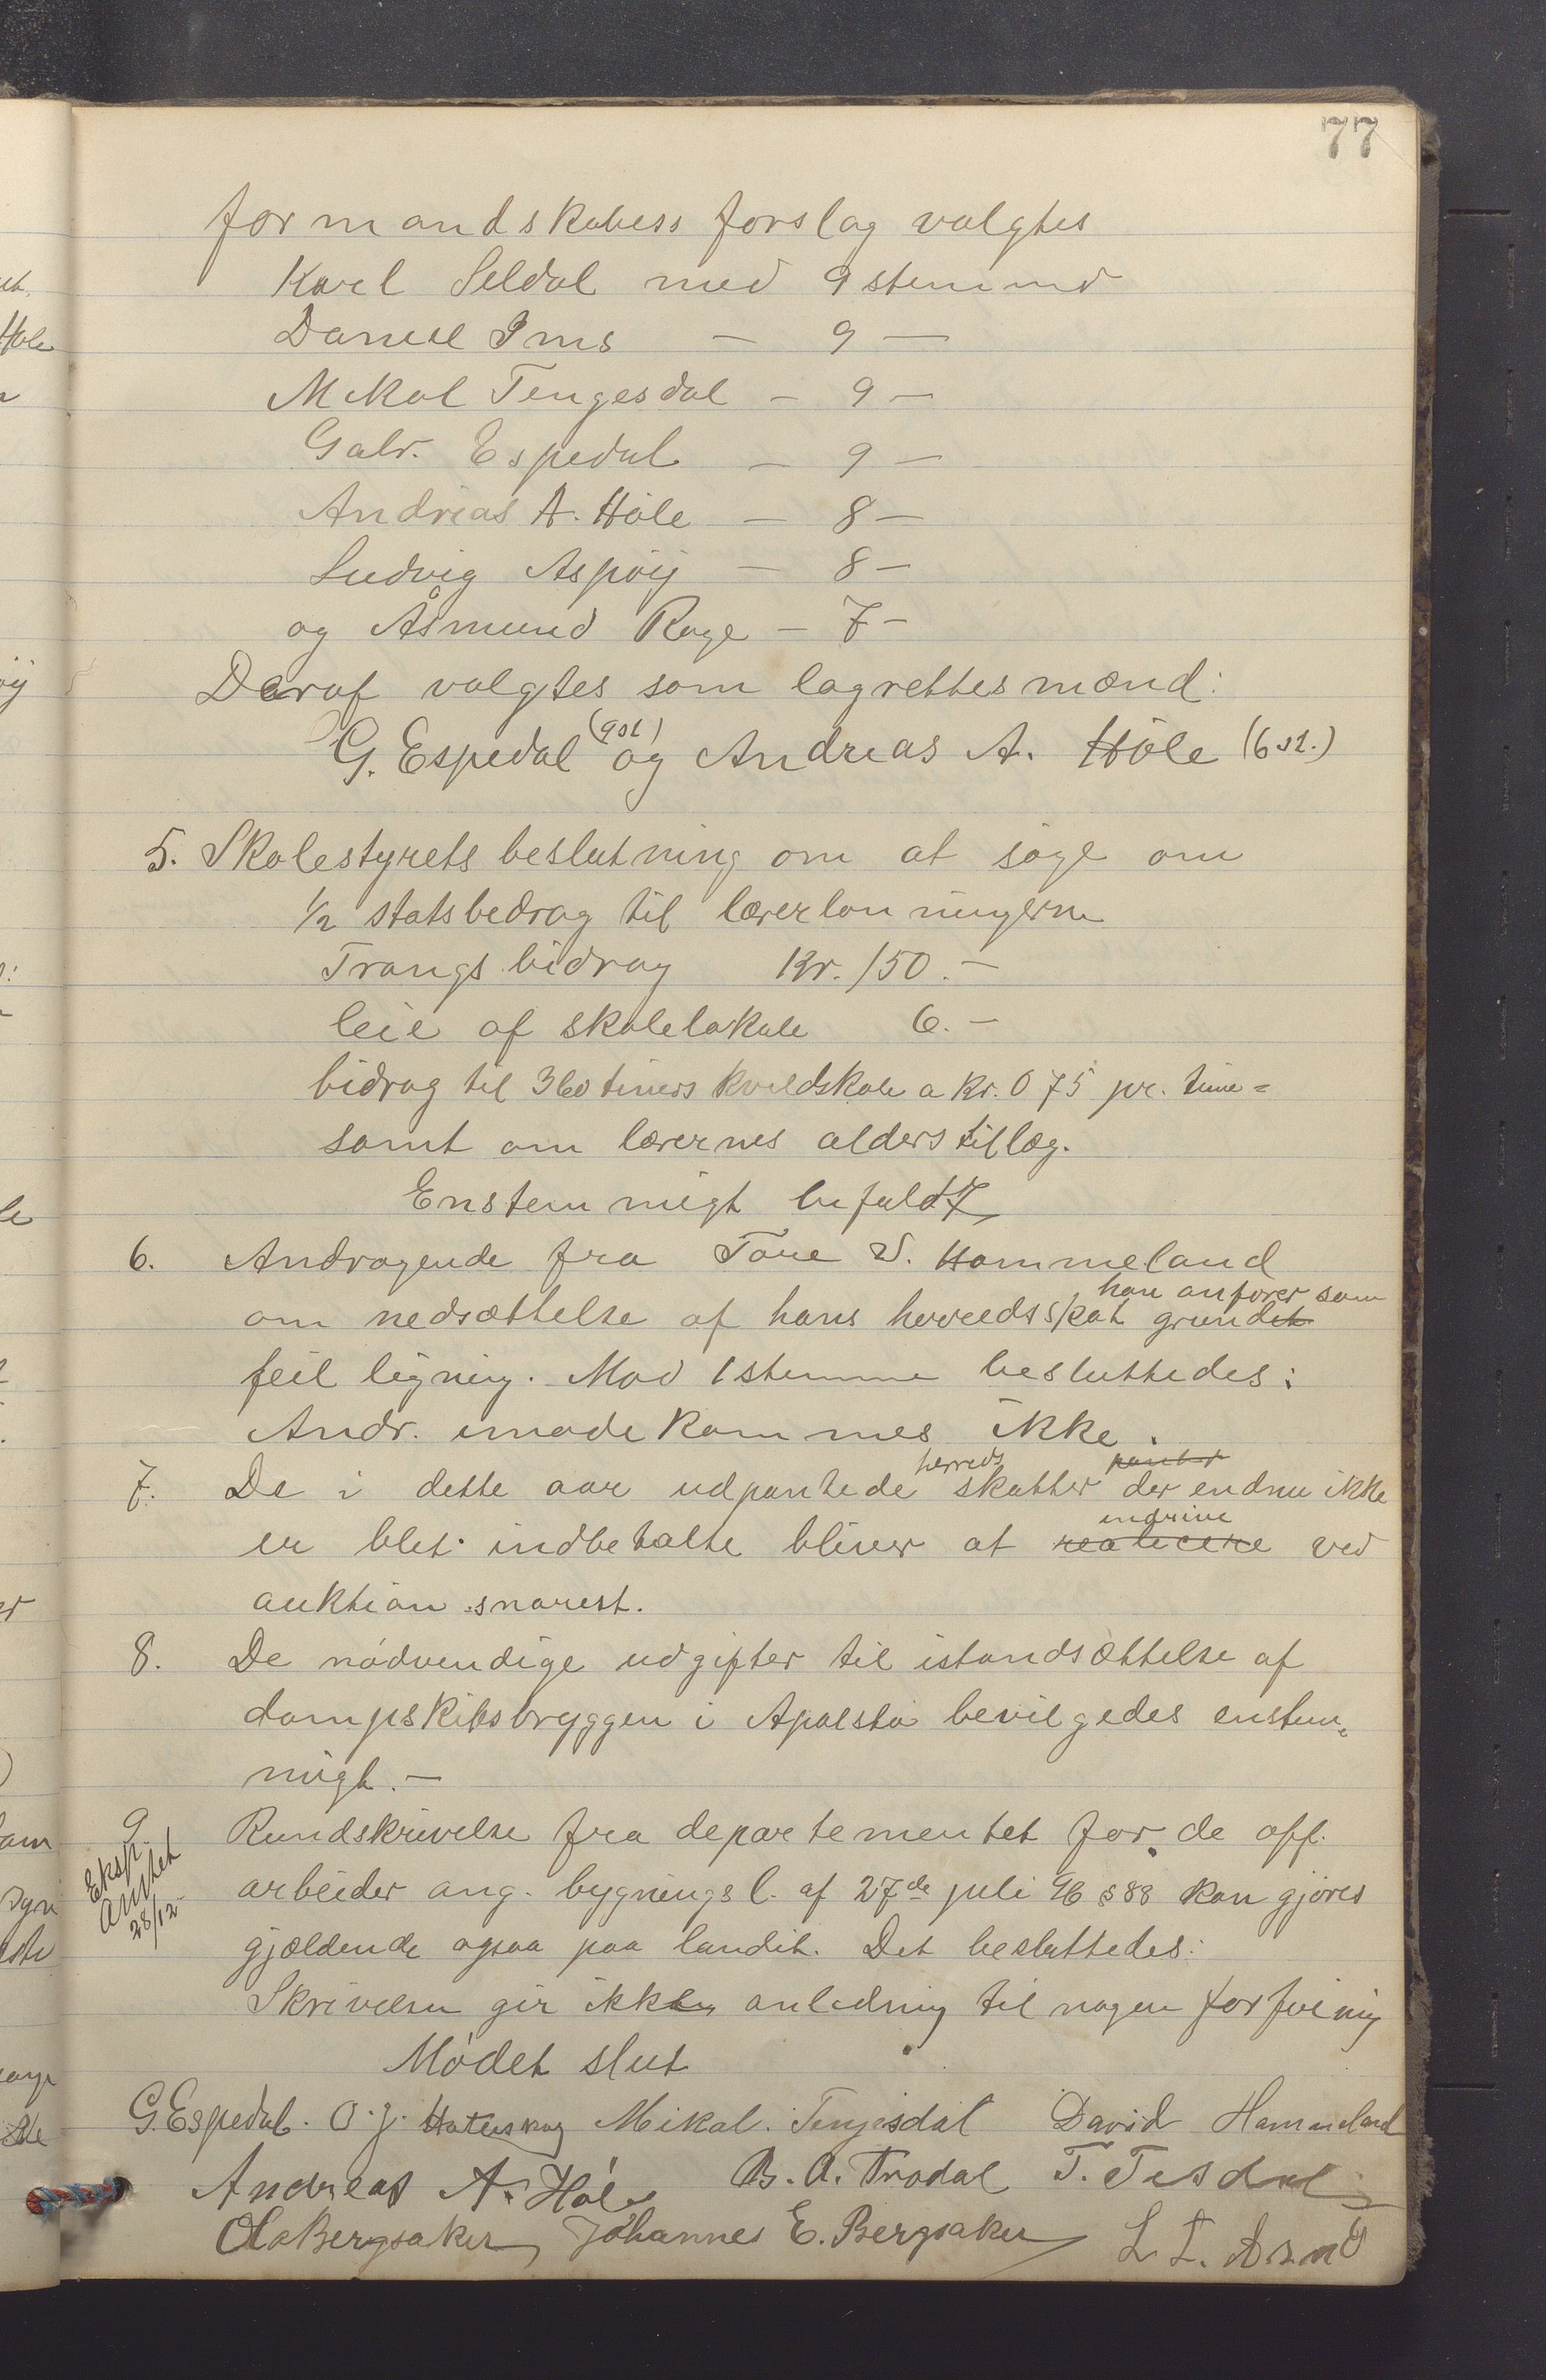 77
formandskabess forslag valgtes
Karl Seldal med 9 stemmer
Daniel Ims — 9 —
Mikal Tengesdal — 9 —
Gabr. Espedal — 9 —
Andreas A. Høle — 8 —
Ludvig Aspøy — 8 —
og Åsmund Rage — 7 —
Deraf valgtes som lagrettesmænd:
G. Espedal (9st) og Andreas A. Høle (6 st.)
5. Skolestyrets beslutning om at søge om
1/2 statsbedrag til lærerlønningerne
Trangsbidrag Kr. 150.—
leie af skolelokale 6.—
bidrag til 360 timers kveldskole a kr. 0 75 pr. time =
samt om lærernes alderstillæg.
Enstemmigt befaldt
6. Andragende fra Tore V. Hommeland
han anfører som
om nedsættelse af hans herredsskat grundet
feil ligning. Mod 1 stemme besluttedes:
Andr. imødekommes ikke.
herreds panter
7. De i dette aar udpantede skatter der endnu ikke
indrive
er blet indbetalte bliver at realicere ved
auktion snarest.
8. De nødvendige udgifter til istandsættelse af
dampskibsbryggen i Apalstø bevilgedes enstem-
migt.—
9 Rundskrivelse fra departementet for de off.
Eksp. Amtet 28/12
arbeider ang. bygningsl. af 27de juli 96 § 88 kan gjøres
gjældende ogsaa paa landet. Det besluttedes:
Skrivelsen gir ikke anledning til nogen forføining
Mødet slut
G. Espedal. O. J. Hatleskog Mikal. Tengesdal David Hammeland
Andreas A. Høle B. A. Trodal T. Tisdal
Ola Bergsaker, Johannes E. Bergsaker L. L. Asmo